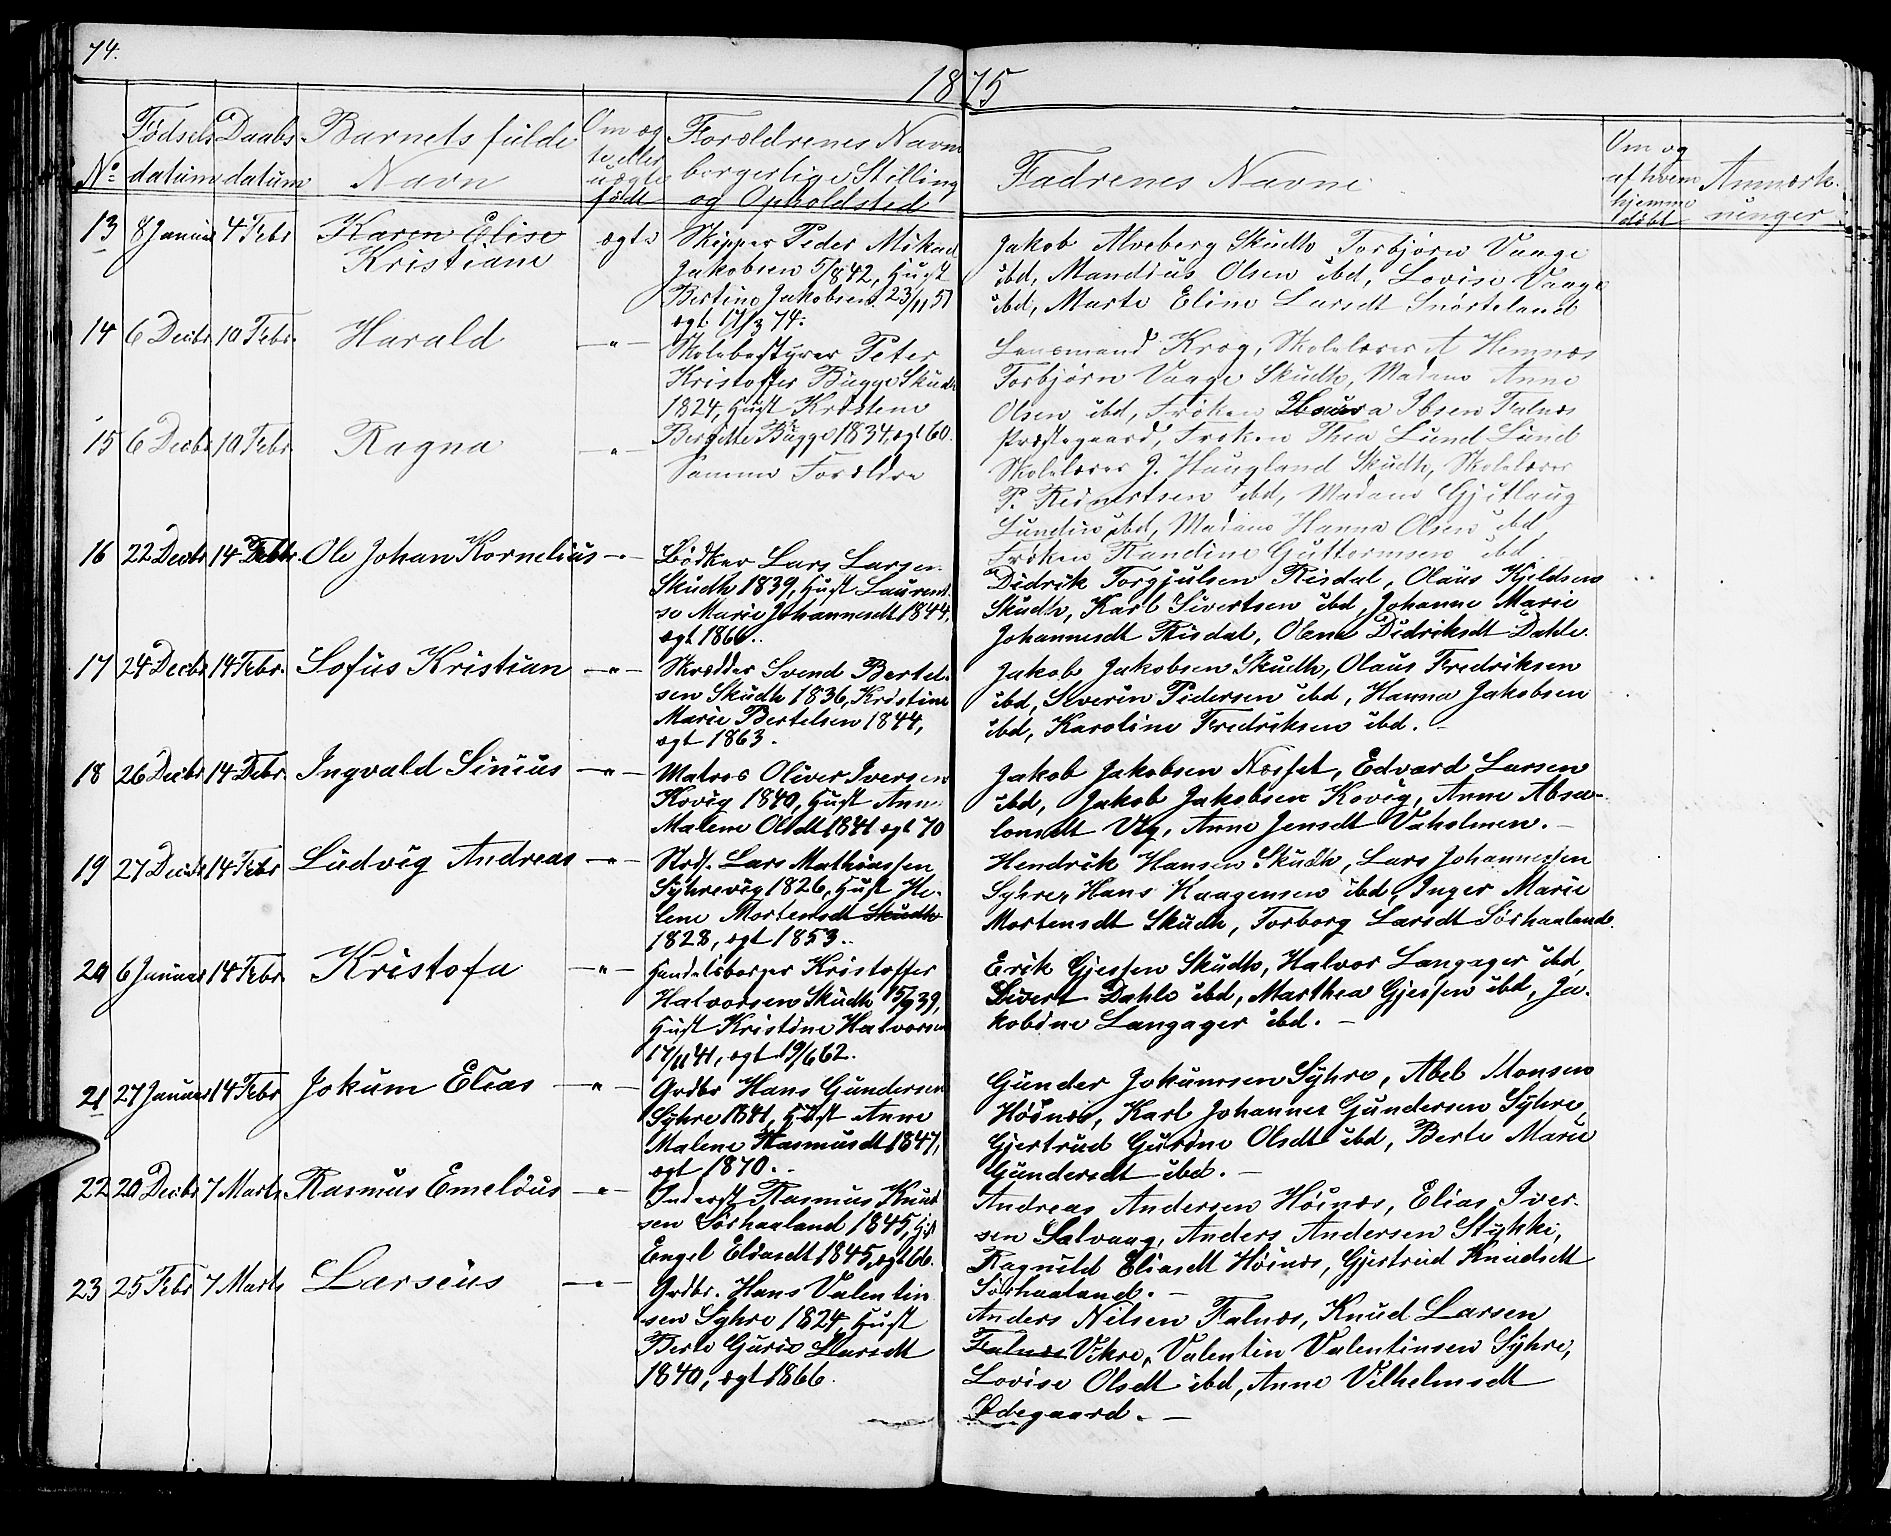 74.
1875
No
Fødsels
datum
Daabs
datum
Barnets fulde
Navn
Om æg
te eller
uægte
født
Forældrenes Navn
borgerlige Stilling
og Opholdsted
Fadrenes Navne
Om og
af hvem
hjemme
døbt
Anmærk-
ninger
13 8 Januar 4 Febr Karen Elise
Kristiane
ægte
Skipper Peder Mikael
Jakobsen 5/8 42, Hust
Bertine Jakobsen 23/11 51
ægt. 17/3 74.
Jakob Alveberg Skudh, Torbjørn Vaage
ibd, Mandius Olsen ibd, Lovise Vaage
ibd, Marte Eline Larsdt Snørteland
14 6 Decbr 10 Febr. Harald —"—
Skolebestyrer Peter
Kristoffer Bugge Skudh
1824, Hust Kristene
Bergitte Bugge 1834, ægt 60.
Lensmand Krog, Skolelærer A Hemnæs
Torbjørn Vaage Skudh, Madame Anne
Olsen ibd, Frøken Ibsen Falnæs
Præstegaard, Frøken Thea Lund Lund
15 6 Decbr 10 Febr. Ragna —"—
Samme Forældre
Skolelærer J. Haugland Skudh, Skolelærer
P. Reinertsen ibd, Madame Gjetlaug
Lundin ibd, Madame Hanna Olsen ibd
Frøken Randine Guttormsen ibd.
16 22 Decbr 14 Febr. Ole Johan Kornelius —"—
Bødker Lars Larsen
Skudh 1839, Hust Laurent-
se Marie Johannesdt 1844,
ægt 1866.
Didrik Torgjulsen Risdal, Olaus Kjeldsen
Skudh, Karl Sivertsen ibd, Johanne Marie
Johannesdt Risdal, Olene Didriksdt Dahle.
17 24 Decbr 14 Febr. Sofus Kristian —"—
Skrædder Svend Bertel-
sen Skudh 1836, Kristine
Marie Bertelsen 1844,
ægt 1863.
Jakob Jakobsen Skudh, Olaus Fredriksen
ibd, Severin Pedersen ibd, Hanna Jakobsen
ibd, Karoline Fredriksen ibd. —
18 26 Decbr 14 Febr. Ingvald Sinius —"—
Matros Oliver Iversen
Kovig 1840, Hust Anne
Malene Olsdt 1841 ægt 70
Jakob Jakobsen Næsset, Edvard Larsen
ibd, Jakob Jakobsen Kovig, Anne Absa-
lomsdt Vig, Anne Jensdt Vaholmen. —
19 27 Decbr 14 Febr Ludvig Andreas —"—
Lars Mathiassen
Syhrevig 1826, Hust He-
lene Mortensdt Skudh
1828, ægt 1853.
Hendrik Hansen Skudh, Lars Johannessen
Syhre, Hans Haagensen ibd, Inger Marie
Mortensdt Skudh, Torborg Larsdt Sørhaaland.
20 6 Januar 14 Febr. Kristofa —"—
Handelsborger Kristoffer
Halvorsen Skudh 15/9 39,
Hust Kristine Halvorsen
17/11 41, ægt 19/6 62.
Erik Gjessen Skudh, Halvor Langager ibd,
Sivert Dahle ibd, Marthea Gjessen ibd, Ja-
kobine Langager ibd. —
21 27 Januar 14 Febr Jokum Elias —"—
Grdbr Hans Gundersen
Syhre 1841, Hust Anne
Malene Rasmusdt 1847,
ægt 1870.
Gunder Jokumsen Syhre, Abel Monsen
Høinæs, Karl Johannes Gundersen Syhre,
Gjertrud Gurine Olsdt ibd, Berte Marie
Gundersdt ibd. —
22 20 Decbr 7 Marts Rasmus Emelius —"—
Inderst Rasmus Knud-
sen Sørhaaland 1845, Hst
Engel Eliasdt 1845, ægt 66.
Andreas Andersen Høinæs, Elias Iver-
sen Salvaag, Anders Andersen Stykki,
Ragnild Eliasdt Høinæs, Gjertrud Knudsdt
Sørhaaland. —
23 25 Febr 7 Marts Larseus —"—
Grdbr. Hans Valentin
sen Syhre 1824, Hust
Berte Guris Larsdt
1840, ægt 1866.
Anders Nilsen Falnæs, Knud Larsen
Falnæs Vikre, Valentin Valentinsen Syhre,
Lovise Olsdt ibd, Anne Vilhelmsdt
Ødegaard. —